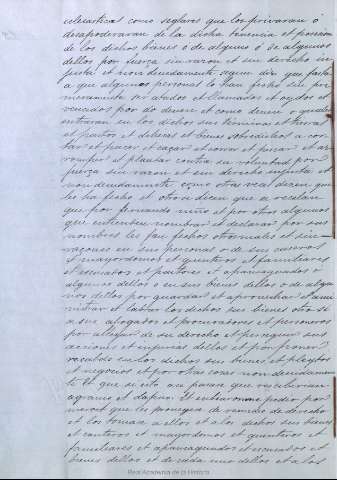 eclesiasticas como seglares que los privaran ó
desapoderaran de la dicha tenencia et posesion
de los dichos bienes ó de alguno ó de algunos
dellos por fuerza sin razon et sin derecho in
justa et non devidamente segun diz que fasta
a que algunas personas lo han fecho sin pri
meramente ser citados et llamados et oydos et
vencidos por do deven et como deven et
entraran en los dichos sus terminos et tierras
et pastos et dehesas et bienes sobredichos a cor
tar et pacer et caçar et et pescar et ar
romper et plantar contra su voluntad por
fuerza sin razon et sin derecho injusta et
non devidamente como otras veces dizen que
les ha fecho et otrosi dizen que se recelan
que por fernando niño et por otros algunos
que entienden nombrar et declarar por sus
nombres les sean fechos otros males et sin
razones en sus personas o de sus caseros
et mayordomos et quinteros et familiares
et escusados et pastores et apaniaguados o
algunos dellos o en sus bienes dellos o de algu
nos dellos por guardar et aprovechar et ami
nistrar et labrar los dichos sus bienes otro si
a sus abogados et procuradores et personeros
por allegar de su derecho et perseguir sus
acciones et dellos et por poner
recabdo en los dichos sus bienes et pleytos
et negocios et por otras cosas non devidamen
te en que si esto asi pasase que recibirian
agravio et daño. Et enbiaronme pedir por
merced que les proveyese de remedio de derecho
et los tomase a ellos et a los dichos sus bienes
et caseros et mayordomos et quinteros et
familiares et apaniaguados et escusados et
bienes dellos et de cada uno dellos et a los
Real Academia de la Historia